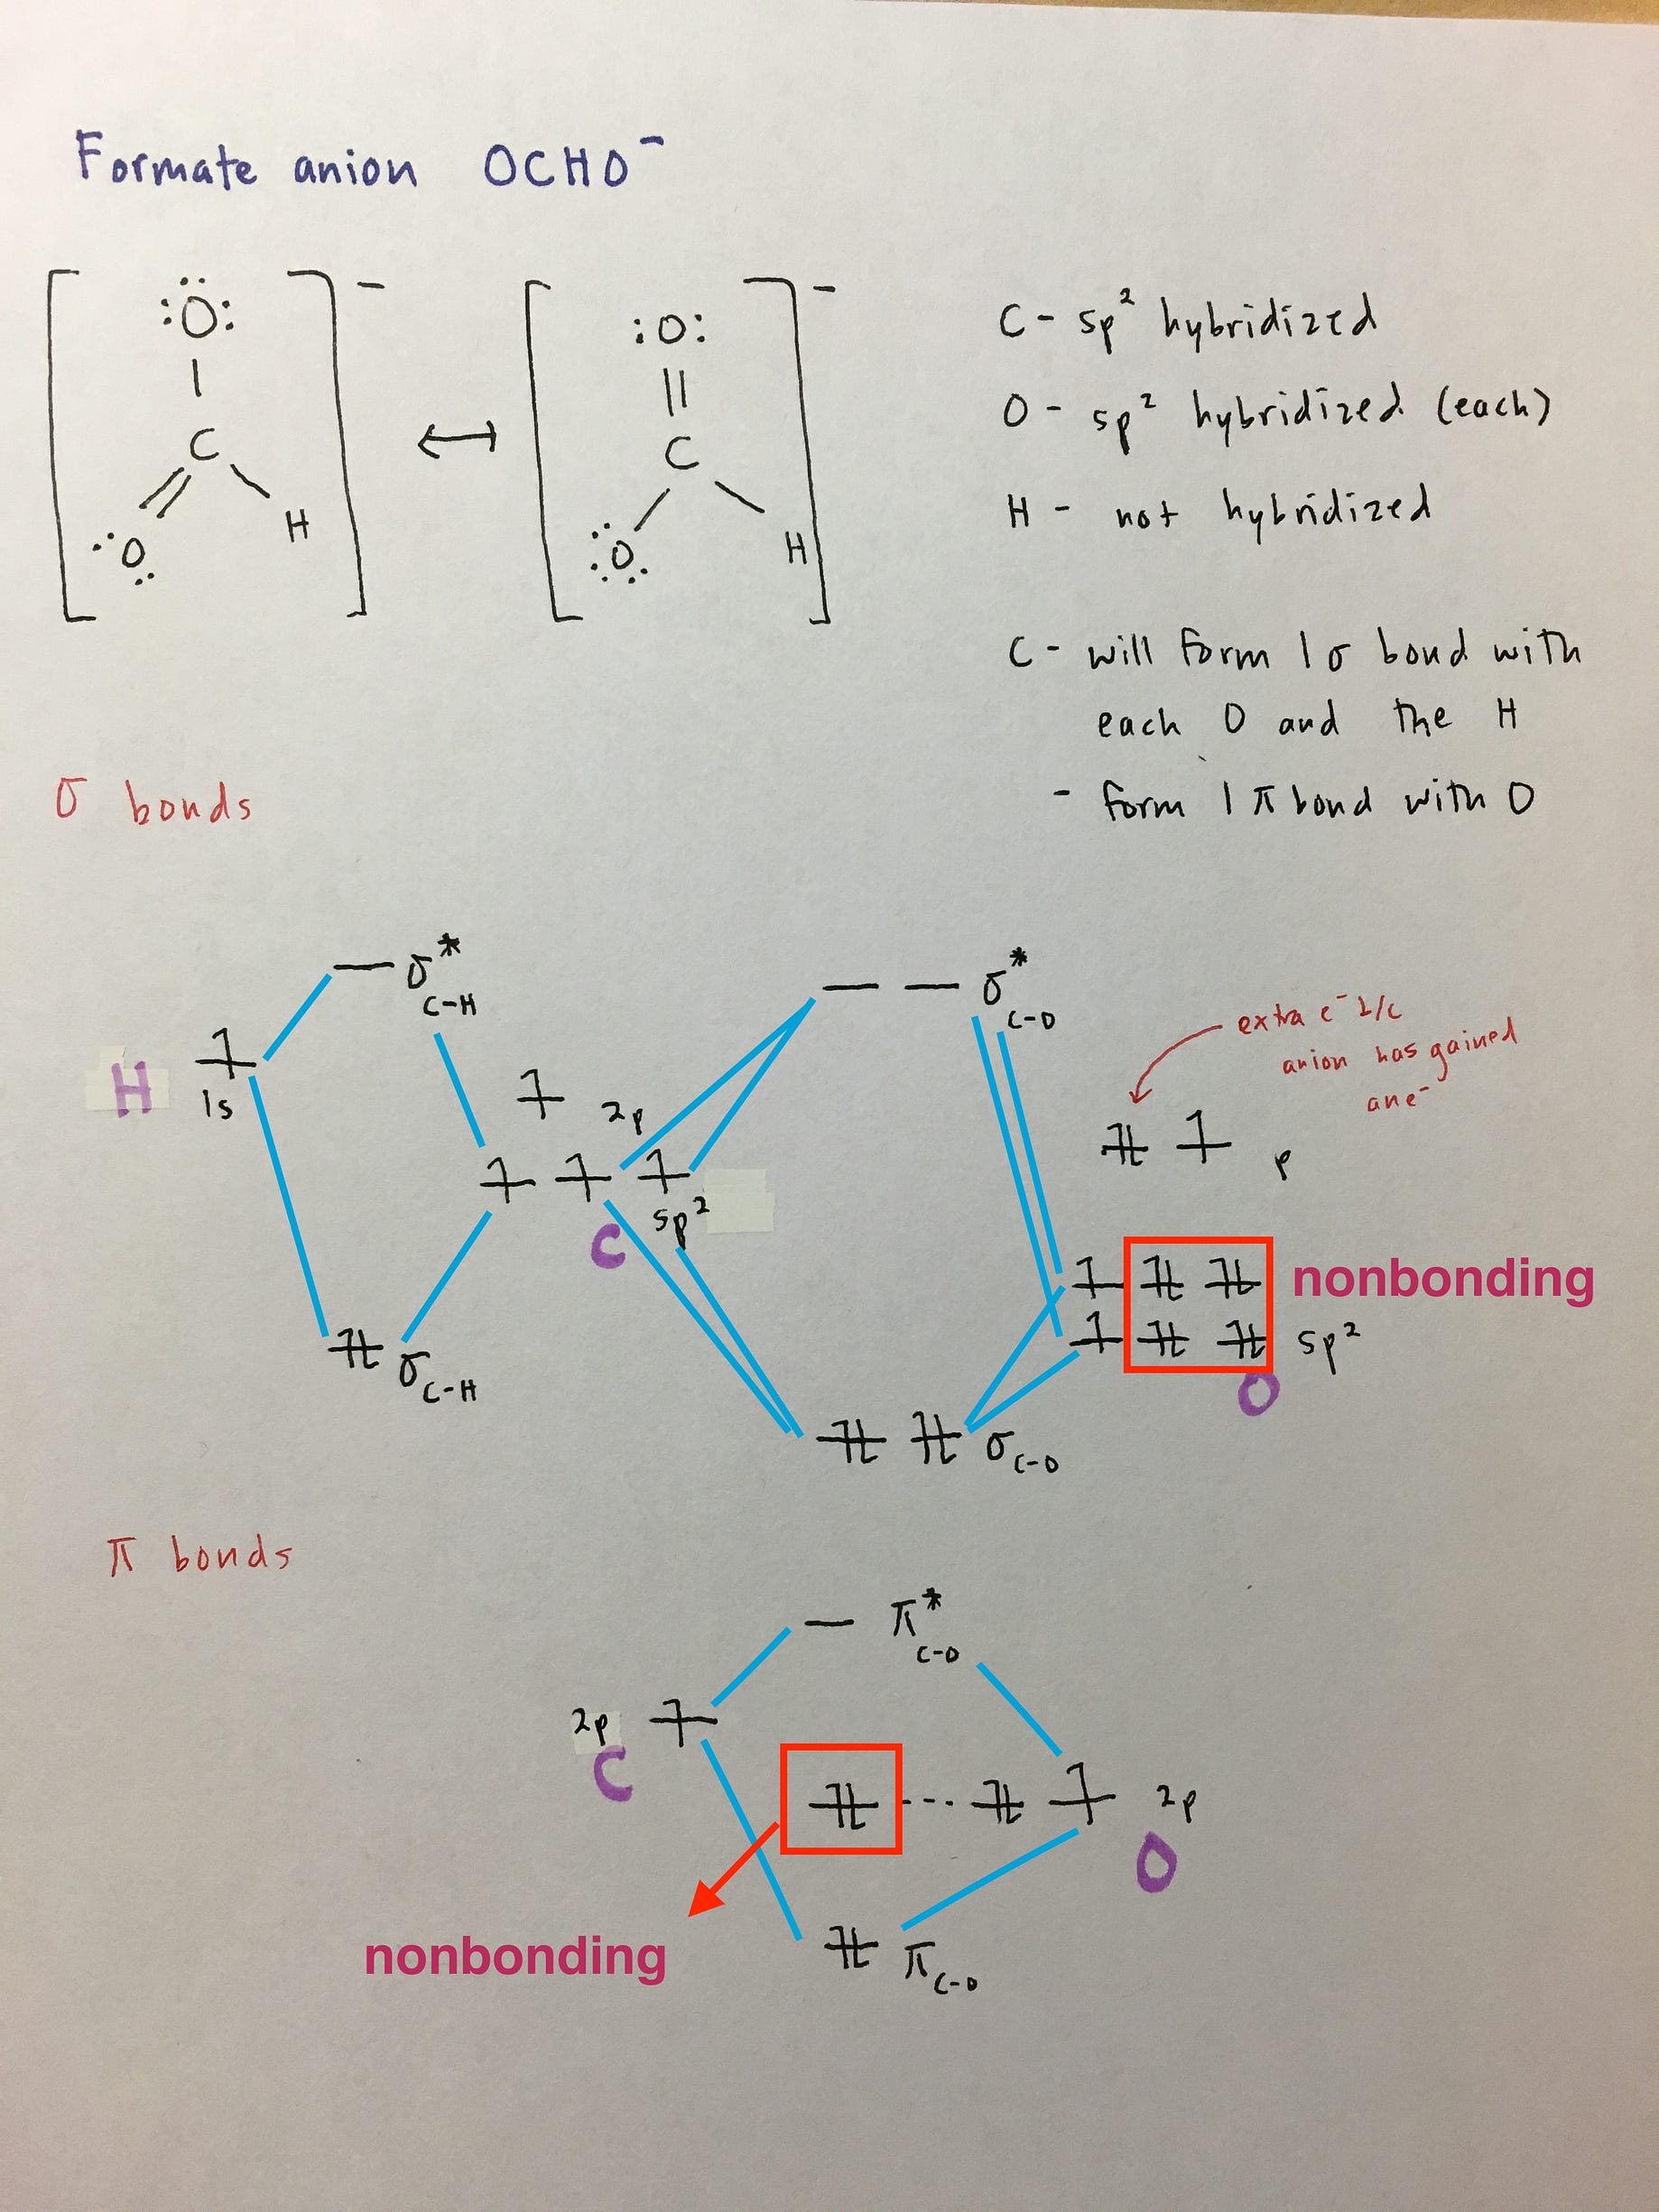 Formate anion OCHO⁻
:Ö: :O:
| ||
C C
H H
:O: :O:
C - sp² hybridized
O - sp² hybridized (each)
H - not hybridized
C - will form 1 σ bond with
each O and the H
- form 1 π bond with O
σ bonds
σ*
C-H
σ*
C-O
H
1s
2p
sp²
C
extra e⁻ b/c
anion has gained
an e⁻
p
nonbonding
sp²
O
σ C-H
σ C-O
π bonds
π*
C-O
2p
C
2p
O
nonbonding
π C-O